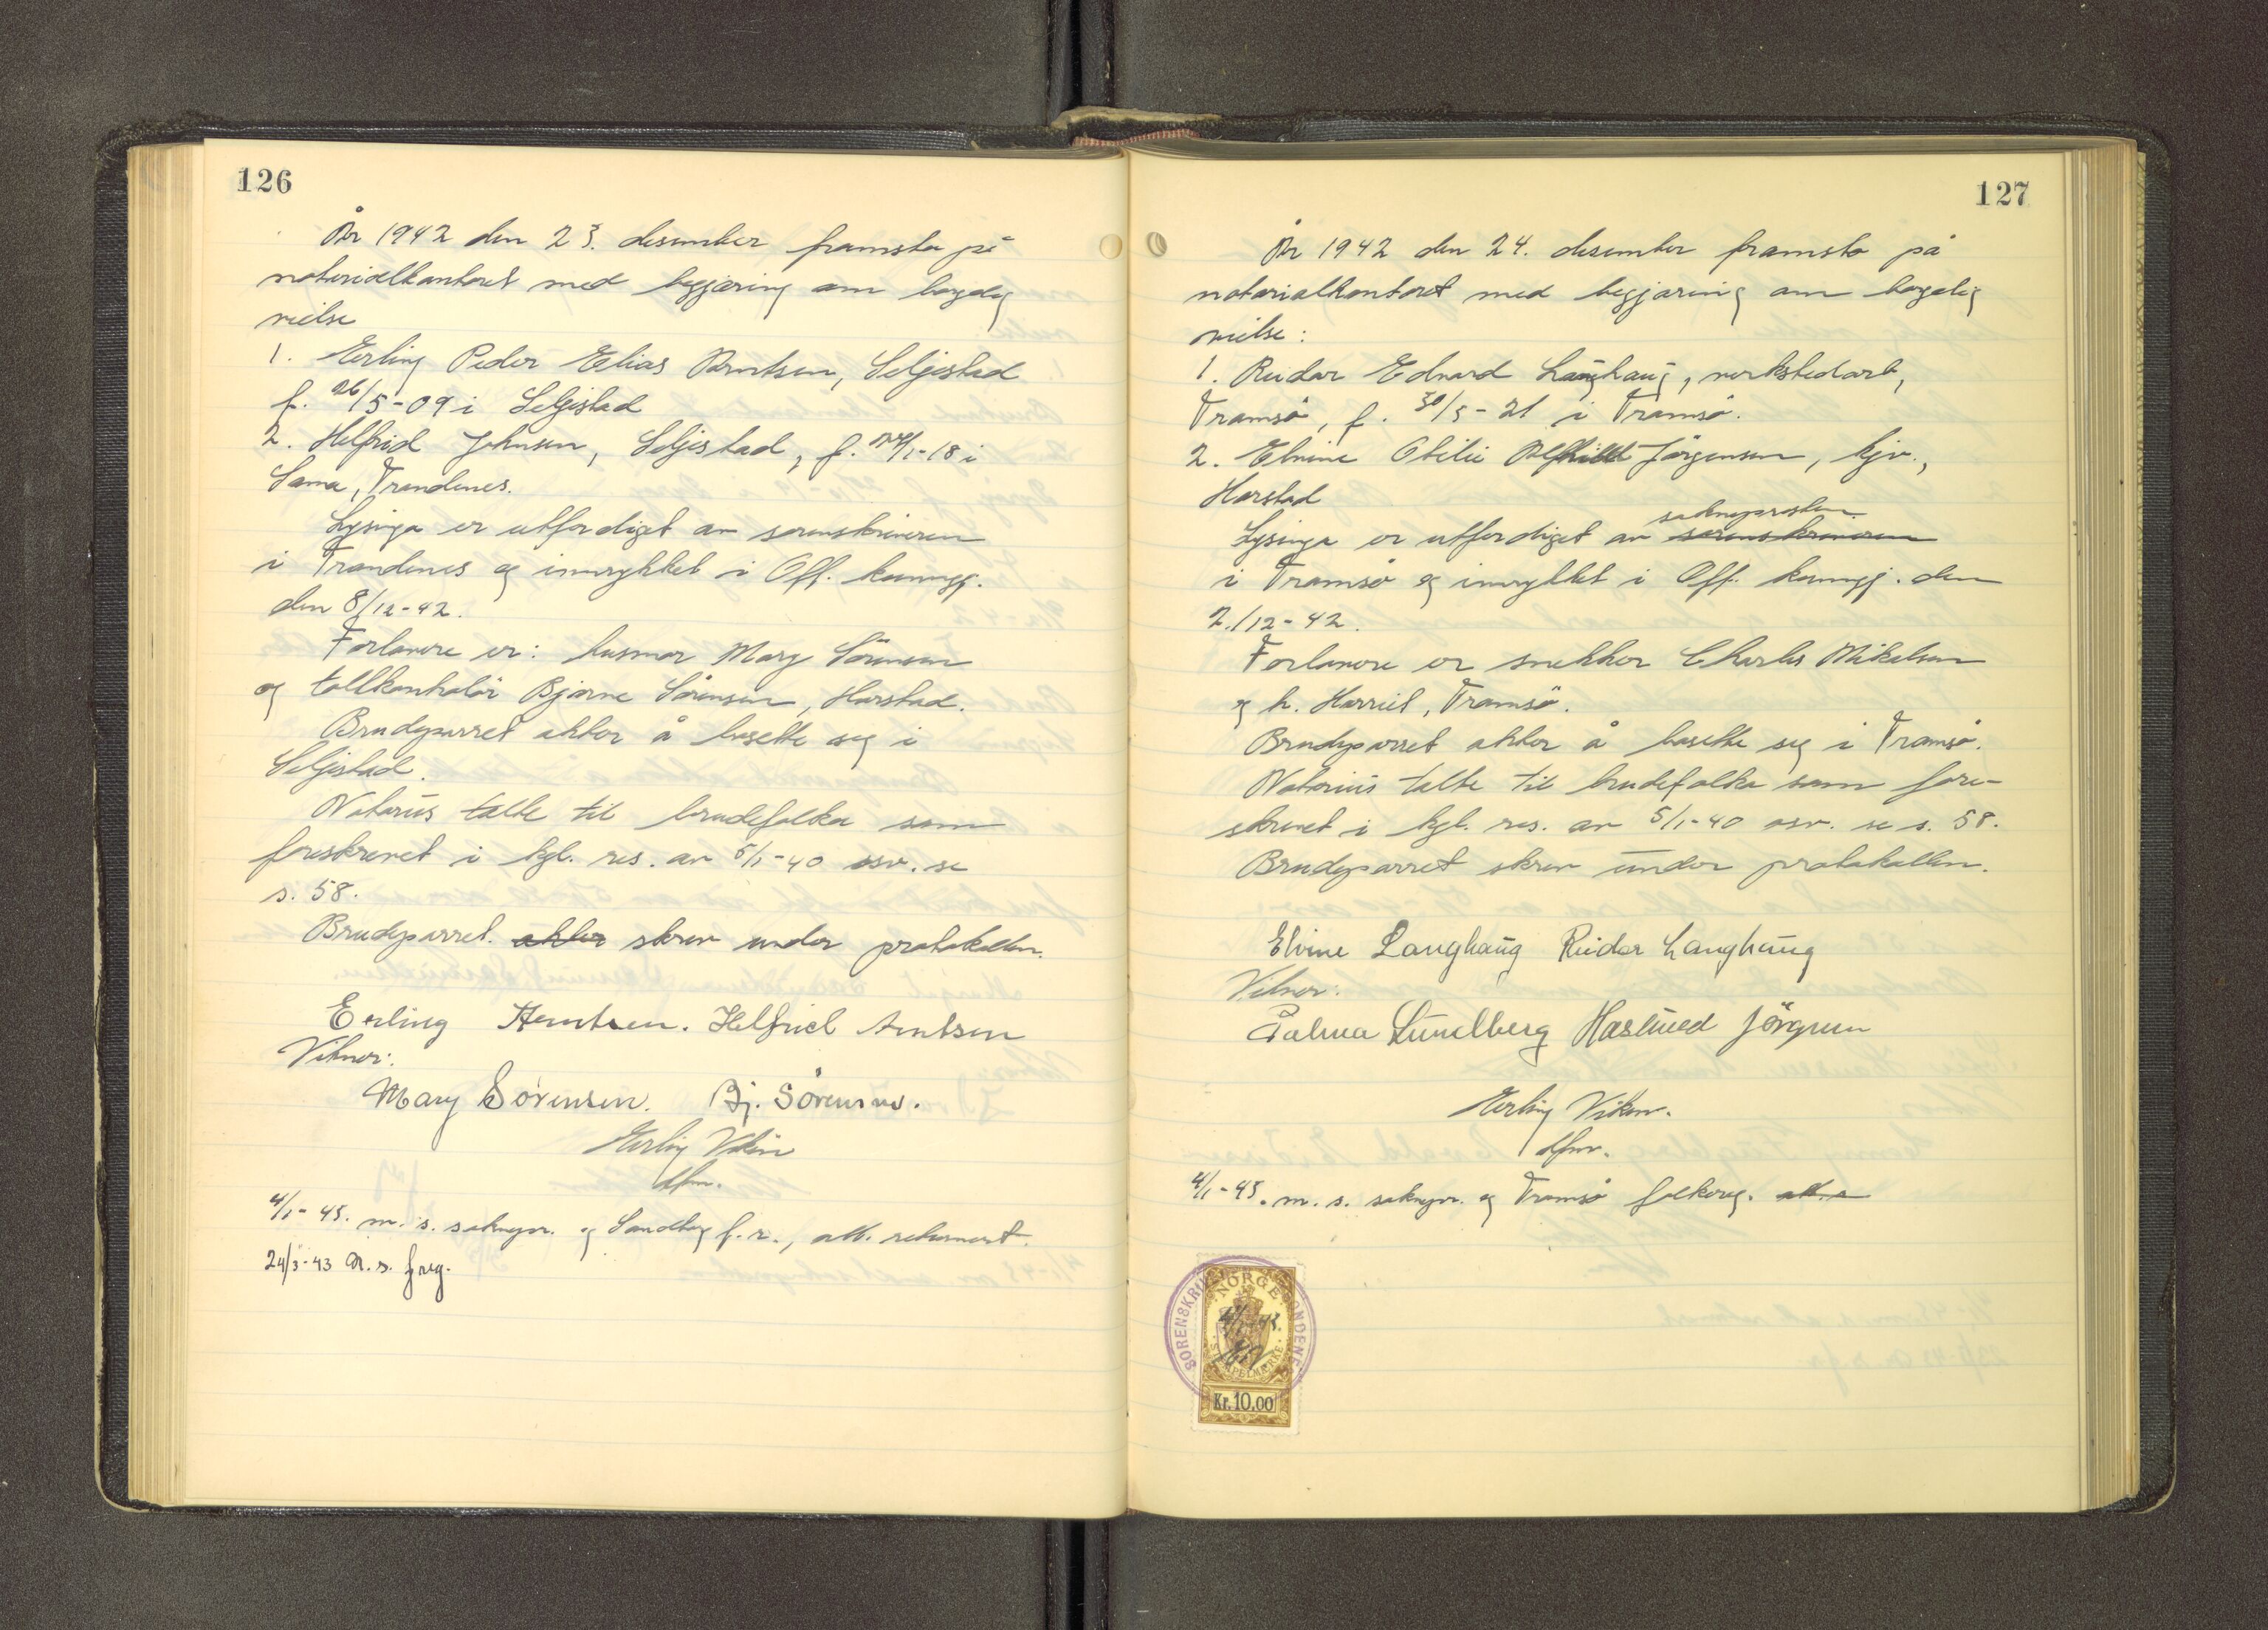 126
År 1942 den 23. desember framsto på
notarialkontoret med begjæring om borgelig
vielse
1. Erling Peder Elias Arntsen, Seljestad
f. 26/5-09 i Seljestad
2. Helfrid Johnsen, Seljestad, f. 24/1-18 i
Sama, Trondenes.
Lysinga er utferdiget av sorenskriveren
i Trondenes og innrykket i Off. kunngj.
den 8/12-42.
Forlovere er: husmor Mary Sörensen
og tollkontrolör Bjarne Sörensen, Harstad.
Brudeparret akter å bosette seg i
Seljestad.
Notarius talte til brudefolka som
foreskrevet i kgl. res. av 5/1-40 osv. se
s. 58.
Brudeparret. akter skrev under protokollen.
Erling Arntsen. Helfrid Arntsen
Vitner:
Mary Sörensen. Bj. Sörensen.
Erling Viken
dfm.
4/1-43. m. s. soknepr. og Sandtorg f.r., att. returnert.
24/3-43 m. s. freg.
127
År 1942 den 24. desember framsto på
notarialkontoret med begjæring om borgelig
vielse:
1. Reidar Edvard Langhaug, verkstedarb,
Tromsö, f. 30/5-21 i Tromsö.
2. Elvine Otilie Alfhild Jörgensen, hjv.,
Harstad
sokneprosten
Lysinga er utferdiget av sorenskriveren
i Tromsö og innrykket i Off. kunngj. den
2./12-42.
Forlovere er snekker Charles Mikalsen
og h. Harriet, Tromsö.
Brudeparret akter å bosette seg i Tromsö.
Notarius talte til brudefolka som fore-
skrevet i kgl. res. av 5/1-40 osv. se s. 58.
Brudeparret skrev under protokollen.
Elvine Langhaug Reidar Langhaug
Vitner:
Palma Lundberg Haslund Jörgensen
Erling Viken.
dfm.
4/1-43. m. s. soknepr. og Tromsö folkereg.
SORENSKRIV
ONDENES
NORGE
STEMPELMERKE
4/1-43.
Kr. 10.00